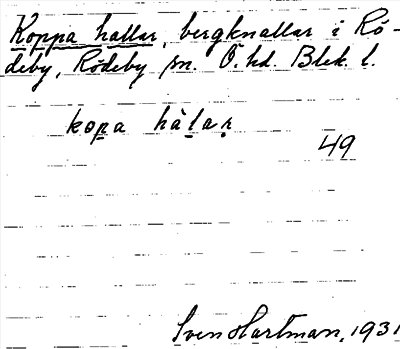 Koppa hallar, bergknallar i Rö-
deby, Rödeby sn. Ö. hd. Blek. l.
kopa hàlar
49
Sven Hartman, 1931